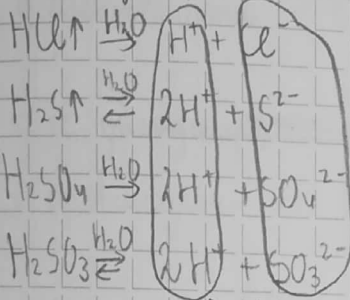 HCl↑ H₂O→ H⁺ + Cl⁻
H₂S↑ H₂O⇄ 2H⁺ + S²⁻
H₂SO₄ H₂O→ 2H⁺ + SO₄²⁻
H₂SO₃ H₂O⇄ 2H⁺ + SO₃²⁻